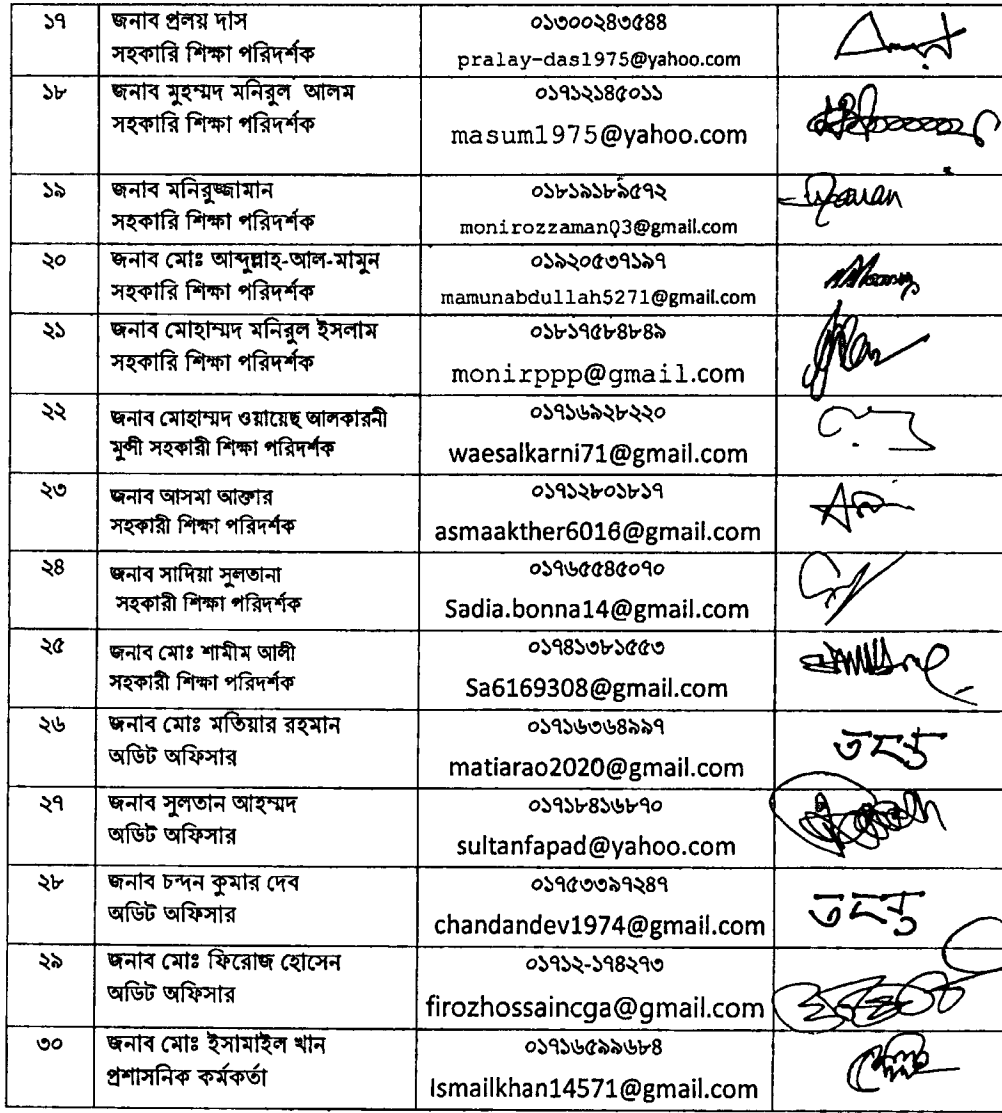 ১৭
জনাব প্রলয় দাস
সহকারি শিক্ষা পরিদর্শক
০১৩০০২৪৩৫৪৪
pralay-das1975@yahoo.com
১৮
জনাব মুহম্মদ মনিরুল আলম
সহকারি শিক্ষা পরিদর্শক
০১৭১২১৪৫০১১
masum1975@yahoo.com
১৯
জনাব মনিরুজ্জামান
সহকারি শিক্ষা পরিদর্শক
০১৮১৯১৮৯৫৭২
monirozzaman03@gmail.com
২০
জনাব মোঃ আব্দুল্লাহ-আল-মামুন
সহকারি শিক্ষা পরিদর্শক
০১৯২০৫৩৭১৯৭
mamunabdullah5271@gmail.com
২১
জনাব মোহাম্মদ মনিরুল ইসলাম
সহকারি শিক্ষা পরিদর্শক
০১৮১৭৫৮৪৮৪৯
monirppp@gmail.com
২২
জনাব মোহাম্মদ ওয়ায়েছ আলকারনী
মুন্সী সহকারী শিক্ষা পরিদর্শক
০১৭১৬৯২৮২২০
waesalkarni71@gmail.com
২৩
জনাব আসমা আক্তার
সহকারী শিক্ষা পরিদর্শক
০১৭১২৮০১৮১৭
asmaakther6016@gmail.com
২৪
জনাব সাদিয়া সুলতানা
সহকারী শিক্ষা পরিদর্শক
০১৭৬৫৫৪৫০৭০
Sadia.bonna14@gmail.com
২৫
জনাব মোঃ শামীম আলী
সহকারী শিক্ষা পরিদর্শক
০১৭৪১৩৮১৫৫৩
Sa6169308@gmail.com
২৬
জনাব মোঃ মতিয়ার রহমান
অডিট অফিসার
০১৭১৬৩৬৪৯৯৭
matiarao2020@gmail.com
তদন্ত
২৭
জনাব সুলতান আহম্মদ
অডিট অফিসার
০১৭১৮৪১৬৮৭০
sultanfapad@yahoo.com
২৮
জনাব চন্দন কুমার দেব
অডিট অফিসার
০১৭৫৩৩৯৭২৪৭
chandandev1974@gmail.com
তদন্ত
২৯
জনাব মোঃ ফিরোজ হোসেন
অডিট অফিসার
০১৭১২-১৭৪২৭৩
firozhossaincga@gmail.com
৩০
জনাব মোঃ ইসামাইল খান
প্রশাসনিক কর্মকর্তা
০১৭১৬৫৯৯৬৮৪
Ismailkhan14571@gmail.com